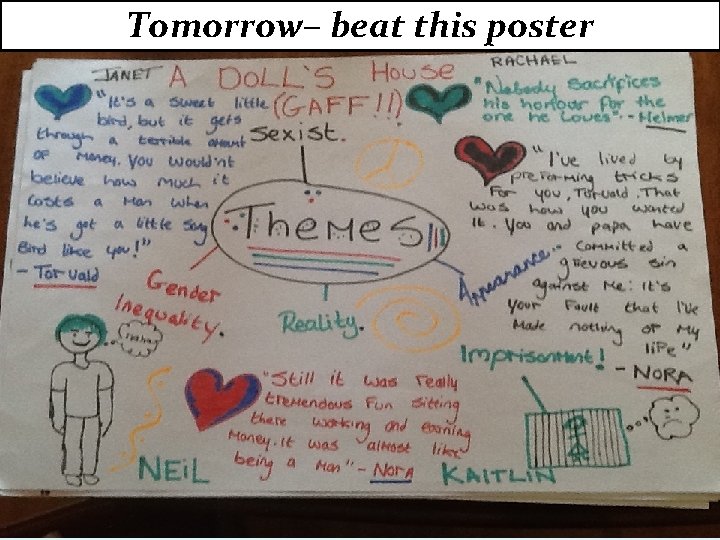 Tomorrow– beat this poster
JANET
A DOLL'S House
(GAFF!!)
RACHAEL
"It's a sweet little
bird, but it gets
through a terrible amount
of money. You wouldn't
believe how much it
costs a man when
he's got a little song
Bird like you!"
- Torvald
"Nobody sacrifices
his honour for the
one he loves" - Helmer
"I've lived by
preforming tricks
For you, Torvald. That
was how you wanted
it. You and papa have
committed a
grievous sin
against me: it's
your fault that I've
made nothing of my
life"
- NORA
Sexist.
Themes
Gender
Inequality.
Reality.
Appearance.
Imprisonment!
"Still it was really
tremendous fun sitting
there working and earning
money. It was almost like
being a man" - Nora
NEIL
KAITLIN